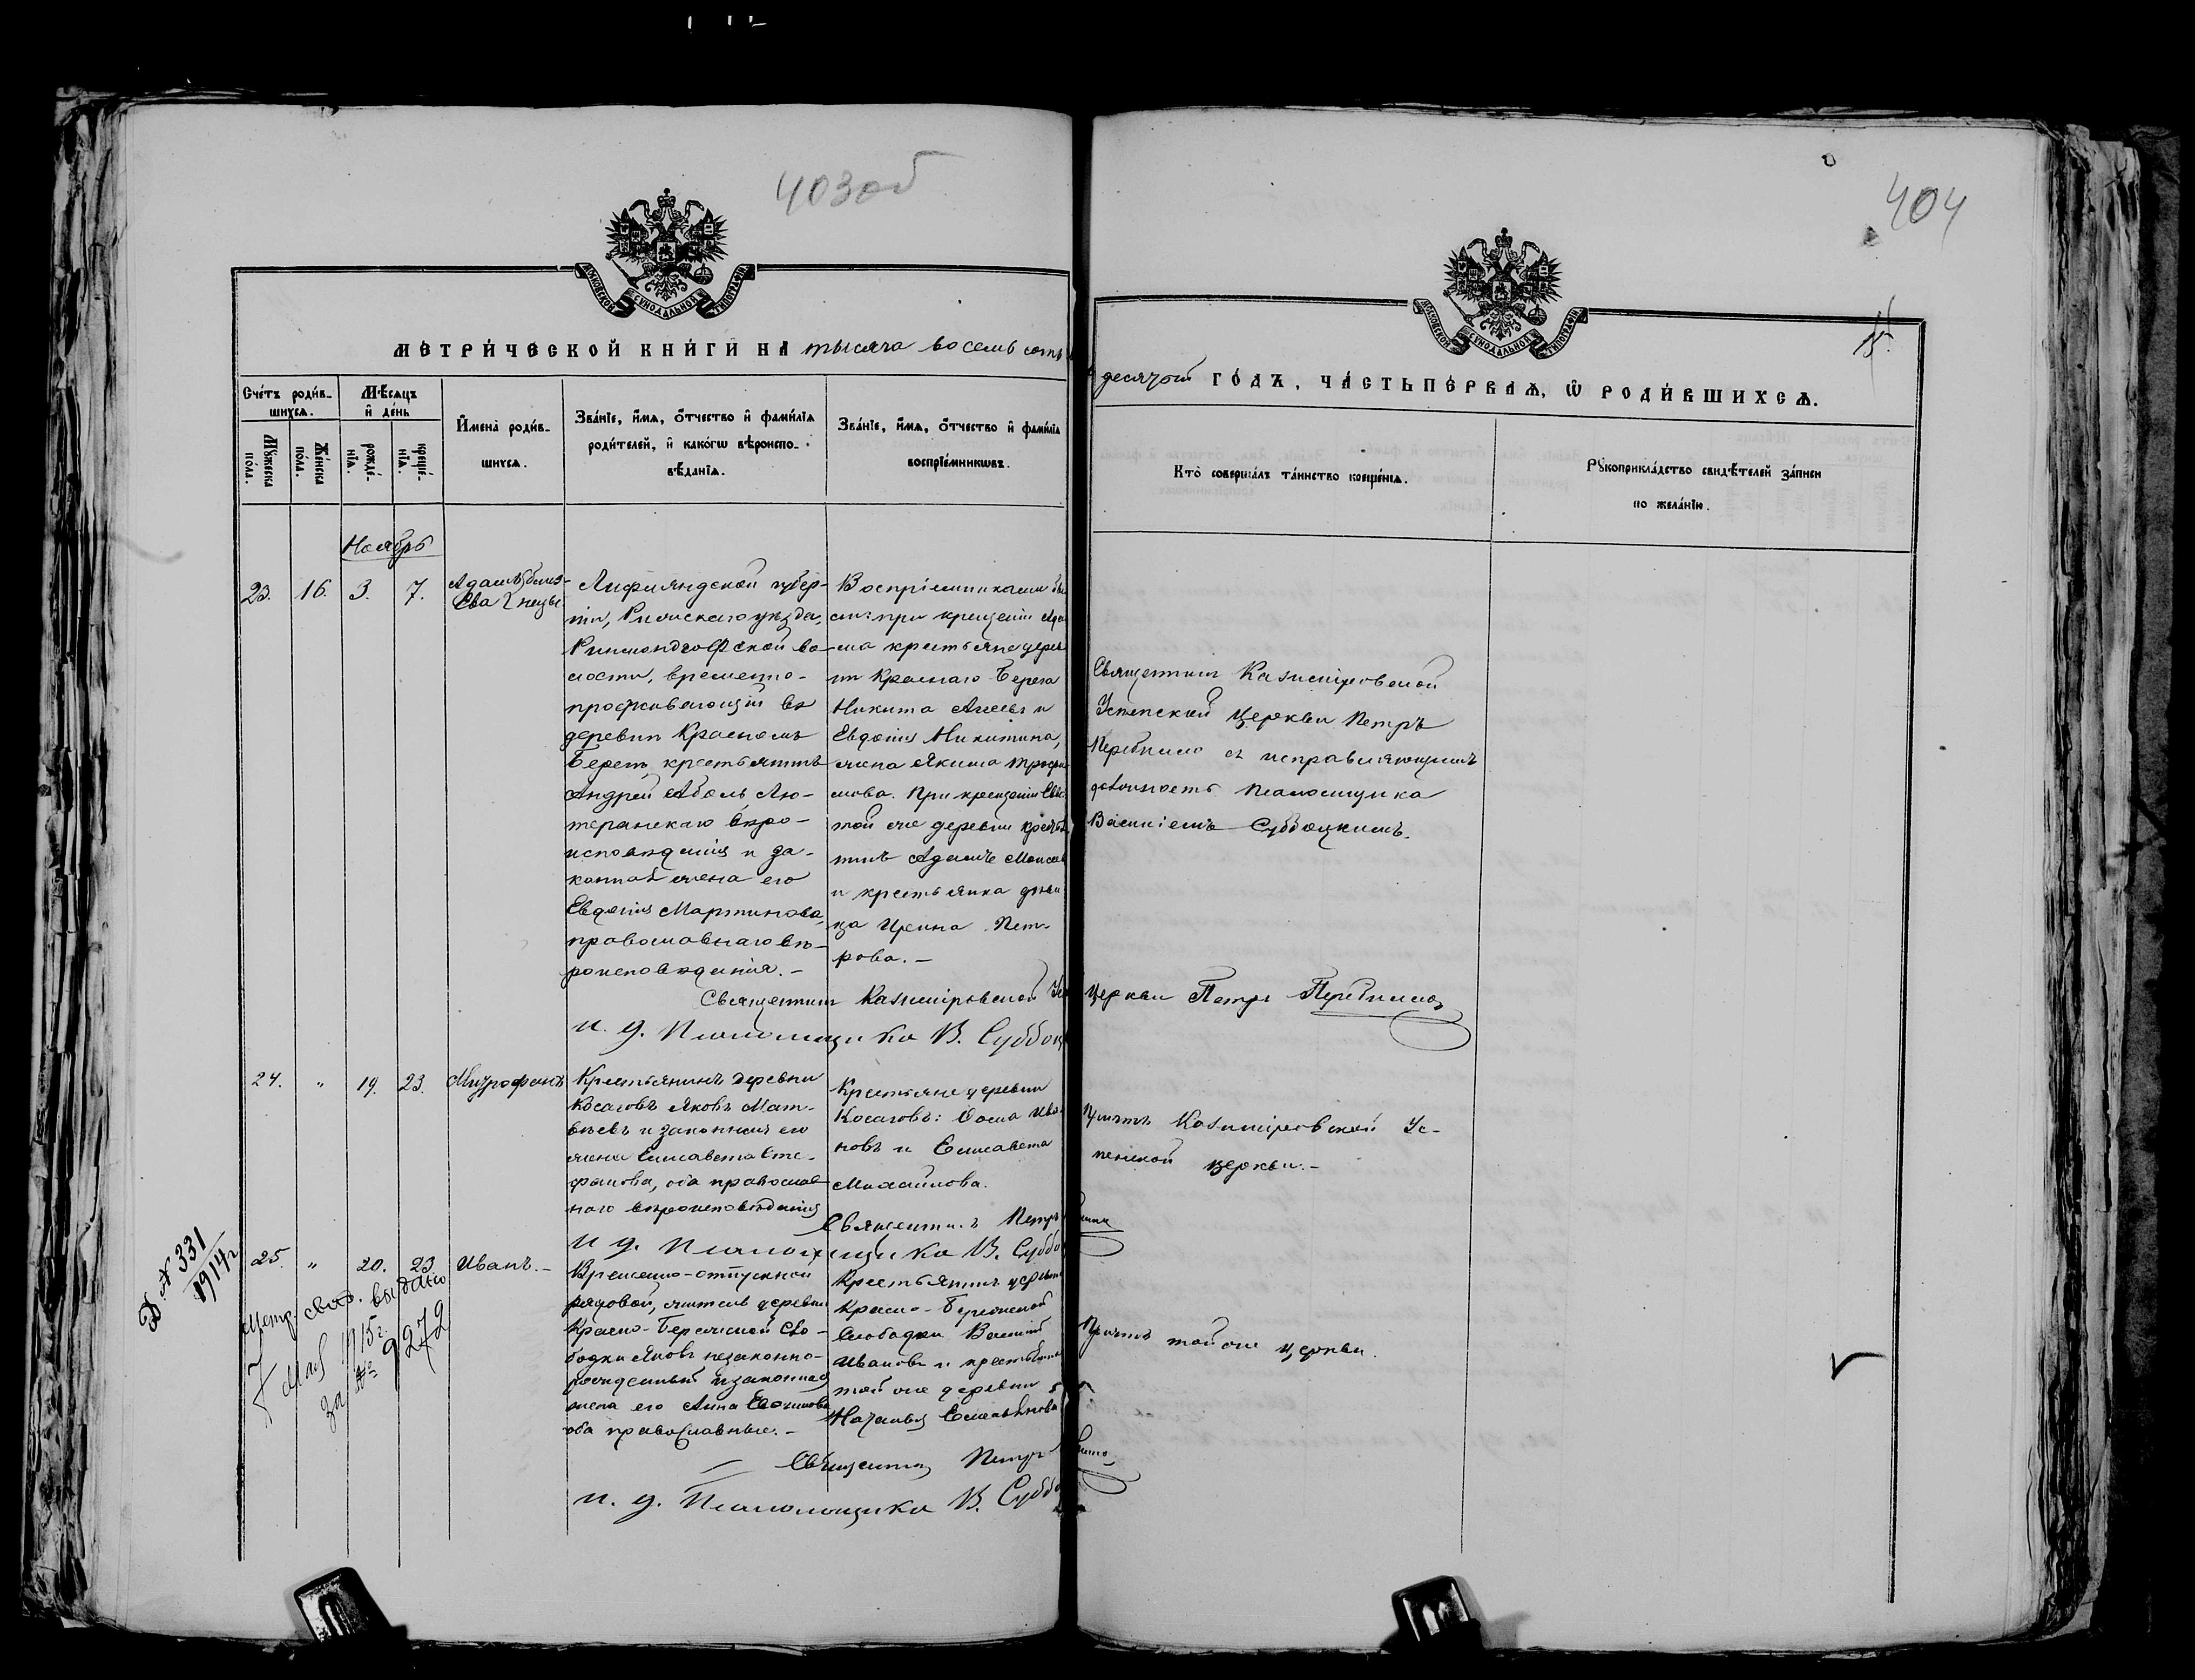 403об
404
МОСКОВСКОЙ СѴНОДАЛЬНОЙ ТИПОГРАФІИ
МОСКОВСКОЙ СѴНОДАЛЬНОЙ ТИПОГРАФІИ
15.
МЕТРИ́ЧЕСКОЙ КНИ́ГИ НА тысяча восемь сотъ
десятый ГО́ДЪ, ЧА́СТЬ ПЕ́РВАѦ, Ѡ҆ РОДИ́ВШИХСѦ.
Сче́тъ роди́в-
шихсѧ.
Мꙋ́жеска по́ла.
Же́нска пола.
Мѣ́сѧцъ
и҆ де́нь
рожде́-нїѧ.
креще́-нїѧ.
И҆мена̀ роди́в-
шихсѧ.
Зва́нїе, и҆́мѧ, ѻ҆́тчество и҆ фами́лїѧ
роди́телей, и҆ како́гѡ вѣроиспо-
вѣ́данїѧ.
Зва́нїе, и҆́мѧ, ѻ҆́тчество и҆ фами́лїѧ
воспрїе́мникѡвъ.
Кто̀ соверша́лъ та́инство креще́нїѧ.
Рꙋкоприкла́дство свидѣ́телей за́писи
по жела́нїю.
Ноябрь
23. 16. 3. 7.
Адамъ близ-
Ева нецы.
Лифляндской губер-
ніи, Рижскаго уѣзда,
во-
лости, временно-
проживающій въ
деревни Красномъ
Берегѣ, крестьянинъ
Андрей Абель Лю-
теранскаго вѣро-
исповѣданія и за-
конная жена его
Евдокія Мартинова,
православнаго вѣ-
роисповѣданія. -
Воспріемниками бы
ли: при крещеніи Ада
ма крестьяне дерев
ни Краснаго Берега
Никита Агеевъ и
Евдокія Никитина,
жена Якима Трофи
мова. При крещеніи Евы:
той же деревни крестья
нинъ Адамъ Моисеев
и крестьянка
ца Ирина Пет-
рова. -
Священникъ Казимировской
Успенской церкви Петръ
съ исправляющимъ
должность псаломщика
Василіемъ Суббоцкимъ.
Священникъ Казимировской Ус церкви Петръ
и. д. Псаломщика В. Суббоц
24. „ 19. 23. Митрофанъ
Крестьянинъ деревни
Косаговъ Яковъ Мат-
вѣевъ и законная его
жена Елисавета Сте-
фанова, оба православ-
наго вѣроисповѣданія
Крестьяне деревни
Косаговъ: Ѳома Ива
новъ и Елисавета
Михайлова.
Причтъ Казимировской Ус-
пенской церкви. -
Священникъ Петръ
и д. Псаломщика В. Суббо
Д. № 331
1914 г
25. „ 20. 23. Иванъ. -
Метр. свид. выдано
7 1915 г.
за № 9272
Временно-отпускной
рядовой, житель деревни
Красно-Бережской Сло-
бодки Яковъ незаконно-
рожденный и законная
жена его Анна Евдокимова
оба православные. -
Крестьянинъ деревни
Красно-Бережской
Слободки Василій
Ивановъ и крестьянка
той же деревни
Наталья Емельянова
Причтъ той же церкви.
Священникъ Петръ
и. д. Псаломщика В. Суббо